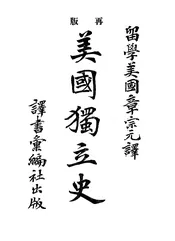 再版
留學美國章宗元譯
美國獨立史
譯書彙編社出版